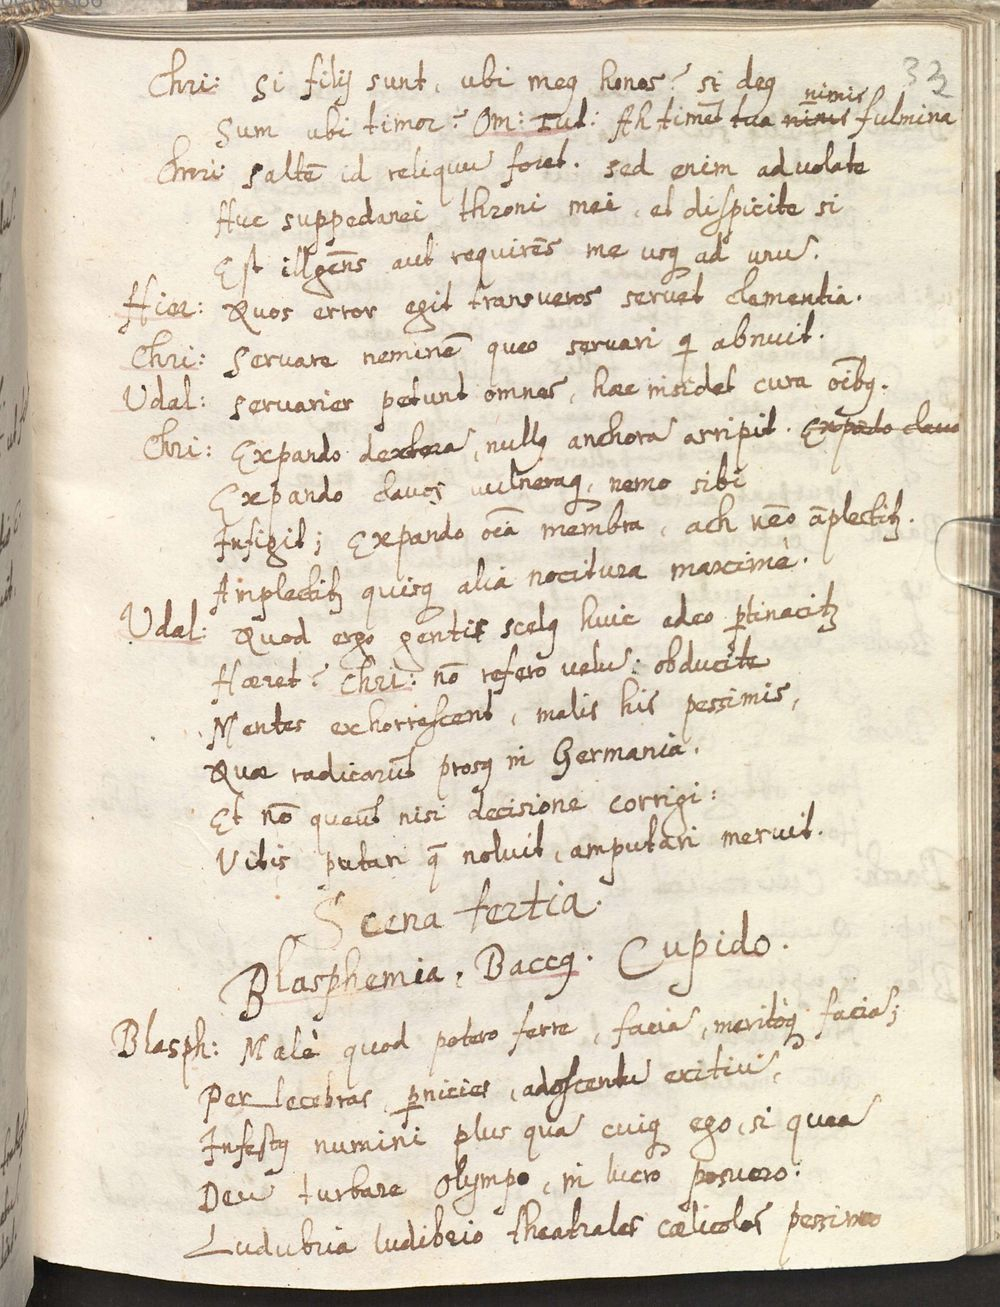 32
Chri: Si filij sunt, ubi meꝯ honos? si deꝯ
nimis
Sum ubi timor? Om: Tut: Ah timēt tua nimis fulmina
Chri: Saltē id reliquū foret. sed enim advolate
Huc suppedanei throni mei, et dispicite si
Est illgēns aut requirēs me usq ad unū.
Hier: Quos error egit transversos servet clementia.
Chri: Servare neminē queo servari q abnuit.
Udal: Servarier petunt omnes, hae insidet cura oībꝯ.
Chri: Expando dexterā, nullꝯ anchorā arripit. Expādo clavo
Expando clavos vulneraq, nemo sibi
Infigit; Expando oīa membra, ach nēo āplectitꝛ.
Amplectitꝛ quisq alia nocitura maxime.
Udal: Quod ergo gentis scelꝯ huic adeo ptinacitꝛ
Haeret? Chri: nō refero velū: obducite
Mentes exhorrescent, malis his pessimis,
Quae radicarūt prorsꝯ in Germania.
Et nō queūt nisi decisione corrigi:
Vitis putari q noluit, amputari meruit.
Scena tertia.
Blasphemia, Baccꝯ. Cupido.
Blasph: Malè quod potero ferre, faciā, meritòq faciā;
Per lecebras, pnicies, adoscentū exitiū,
Infestꝯ numini plus quā cuiq ego, si queā
Deū turbare Olympo, in lucro posuero:
Ludubria ludibrio theatrales caelicolas pessimo